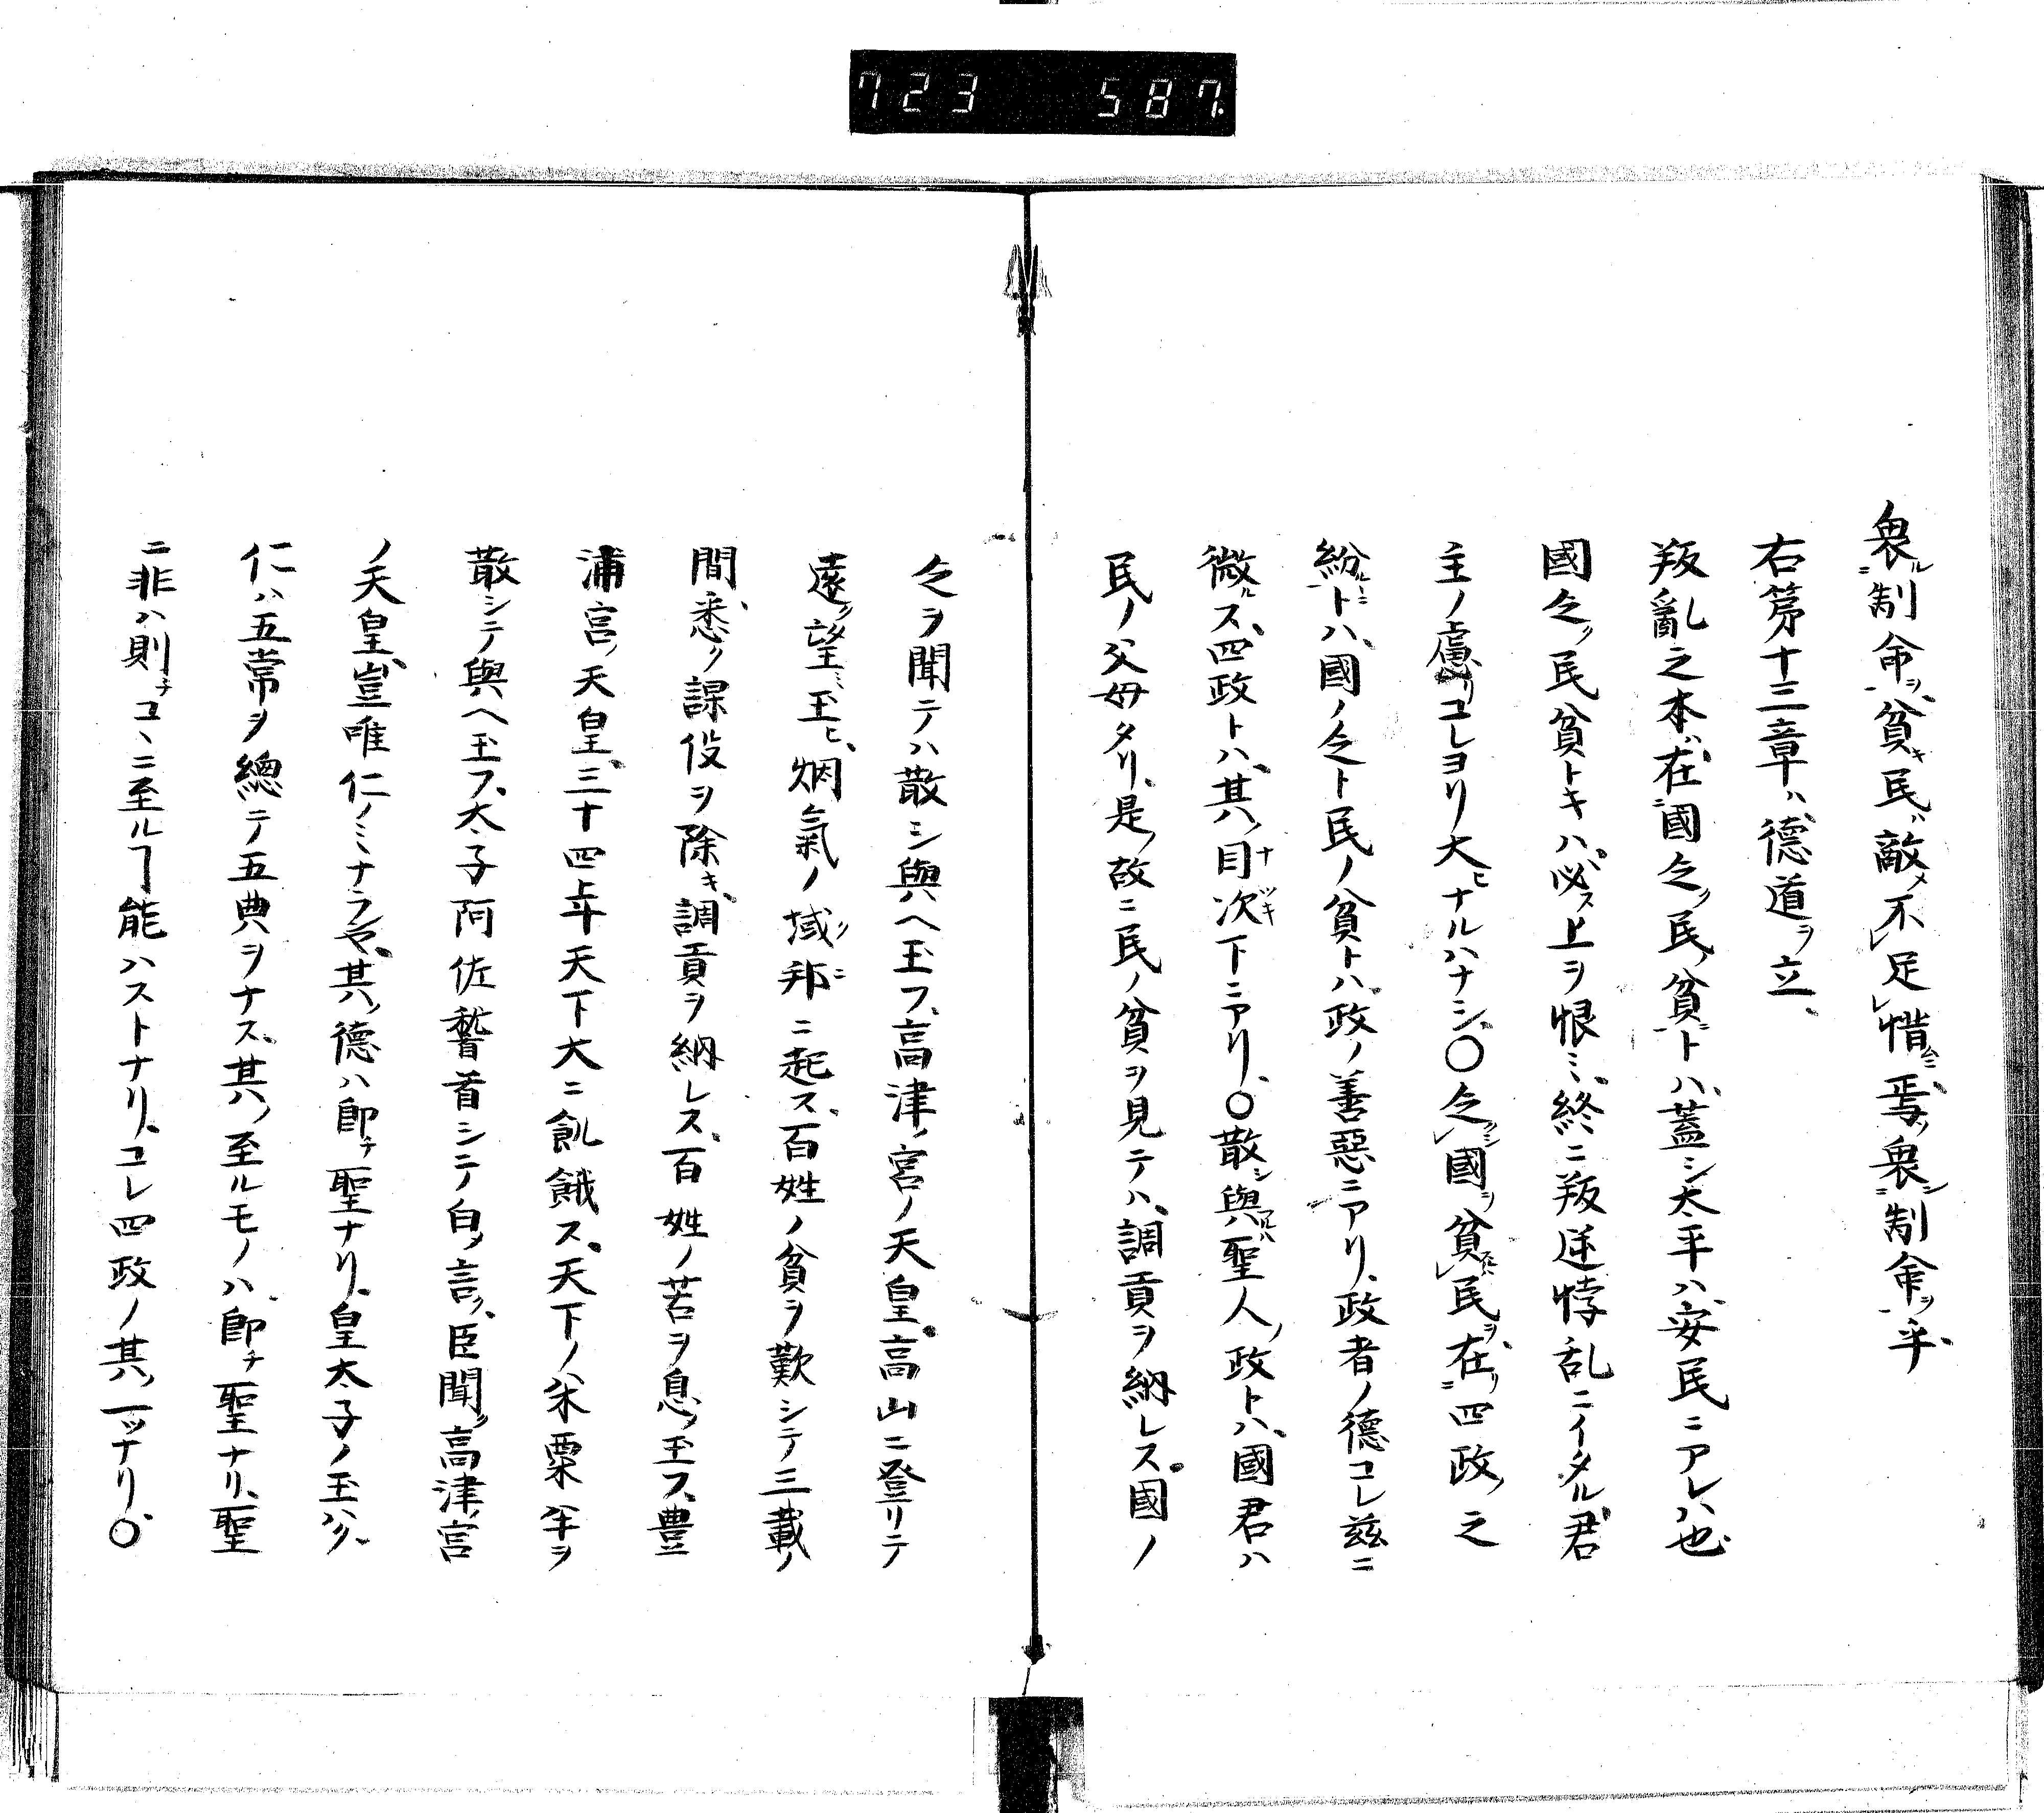 723 587
衰ル制命ヲ貧キ民ガ敵メ不レ足レ惜ムニ焉ソ衰シ制命ヲ乎
右第十三章ハ德道ヲ立、
叛亂之本ガ在國乏ク民貧トハ蓋シ太平ハ安民ニアレハ也
國乏ク民貧トキハ必ス上ヲ恨ミ終ニ叛逆悖乱ニイタル君
主ノ慮リコレヨリ大ヒナルハナシ〇乏シ國ヲ貧民ヲ在リ四政ノ之
紛ルニトハ國ノ乏ト民ノ貧トハ政ノ善惡ニアリ政者ノ德コレ茲ニ
微ルス四政トハ其ノ目ナ次ツキ下ニアリ〇散シ與フルハ聖人ノ政トハ國君ハ
民ノ父母タリ是ノ故ニ民ノ貧ヲ見テハ調貢ヲ納レス國ノ
乏ヲ聞テハ散シ與ヘ玉フ高津ノ宮ノ天皇高山ニ登リテ
遠ク望ミ玉ヒ烟氣ノ域ノ邦ニ起ス百姓ノ貧ヲ歎シテ三載ノ
間悉ク課役ヲ除キ調貢ヲ納レス百姓ノ苦ヲ息ノ玉フ豊
浦宮ノ天皇三十四年天下大ニ飢餓ス天下ノ米粟半ヲ
散シテ與ヘ玉フ太子阿佐稽首シテ白ノ言ク臣聞ク高津宮
ノ天皇豈唯仁ノミナラヤ其ノ德ハ即チ聖ナリ皇太子ノ玉ハク
仁ハ五常ヲ總テ五典ヲナス其ノ至ルモノハ即チ聖ナリ聖
ニ非ハ則チコヽニ至ルヿ能ハストナリコレ四政ノ其ノ一ッナリ〇